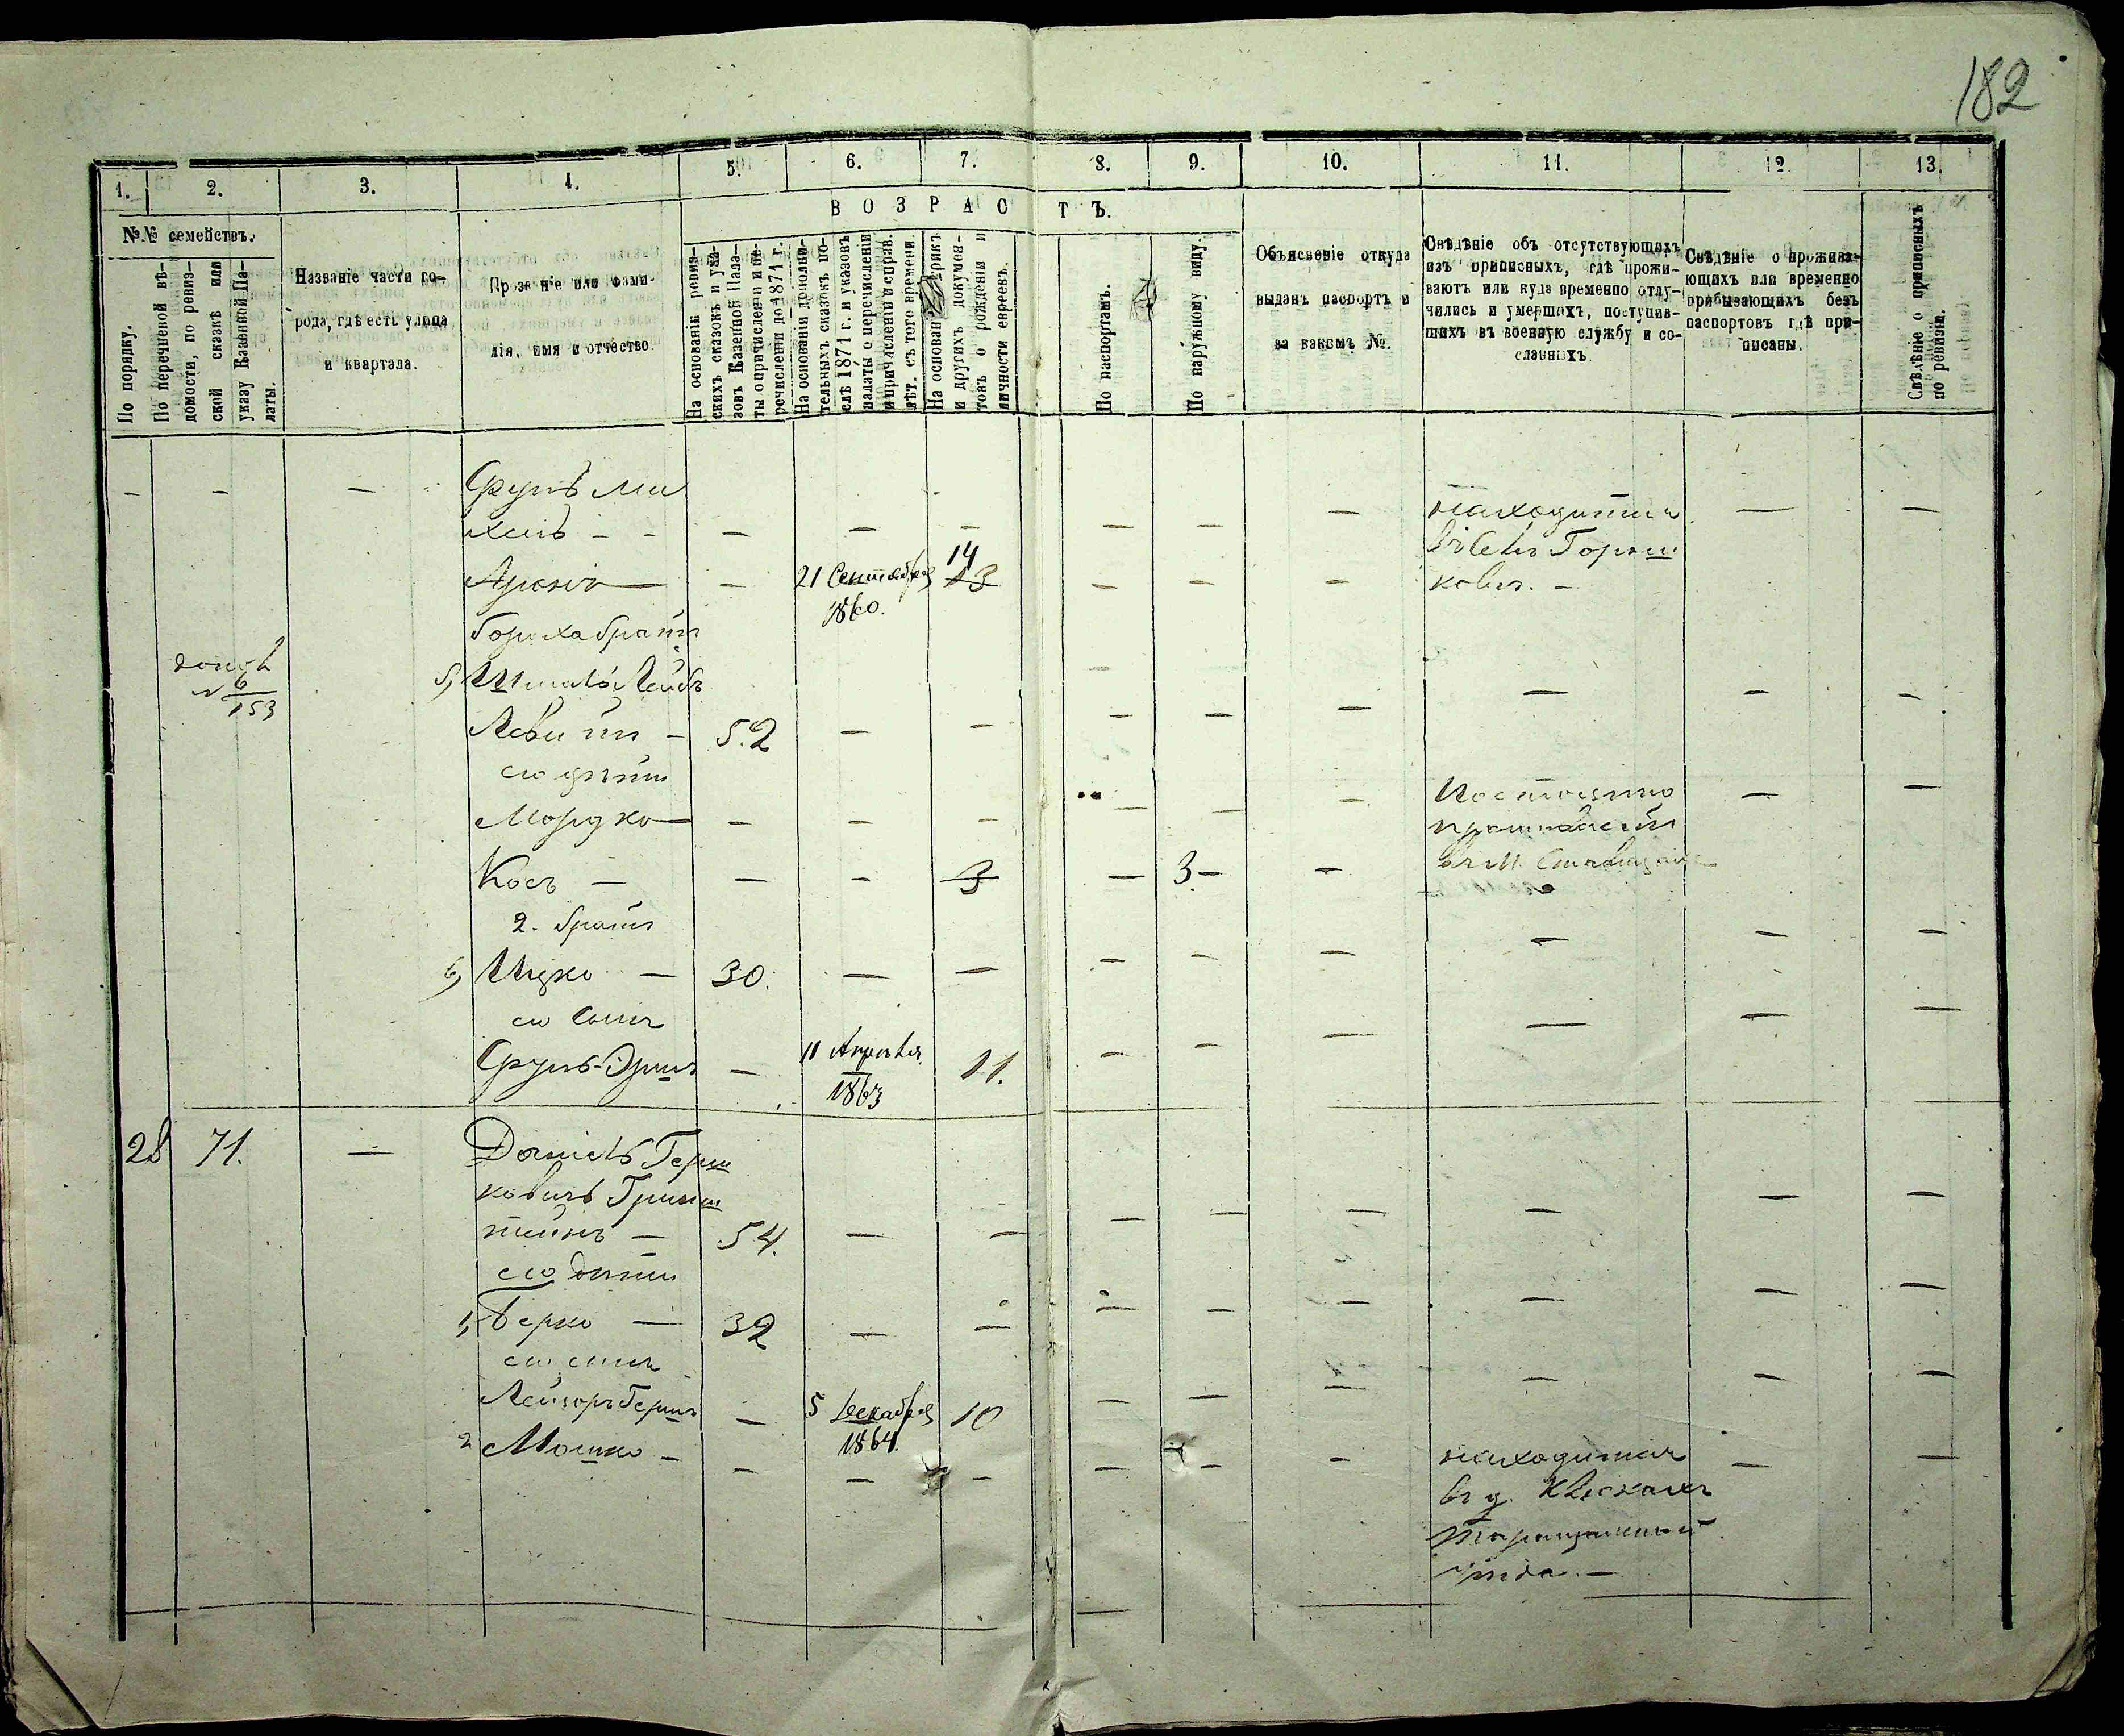 182
1. 2. 3. 4. 5. 6. 7. 8. 9. 10. 11. 12. 13.
ВОЗРАСТЪ.
№№ семействъ.
По порядку.
По перечневой вѣ-
домости, по ревиз-
ской сказкѣ или
указу Казенной Па-
латы.
Названіе части го-
рода, гдѣ есть улица
и квартала.
Прозваніе или фами-
лія, имя и отчество.
На основаніи ревиз-
скихъ сказокъ и ука-
зовъ Казенной Пала-
ты о причисленіи и пе-
речисленіи до 1871 г.
На основаніи дополни-
тельныхъ сказокъ по-
слѣ 1871 г. и указовъ
палаты о перечисленіи
и причисленіи исправ.
лѣт. съ того времени.
На основаніи метрикъ
и другихъ докумен-
товъ о рожденіи и
личности евреевъ.
По паспортамъ.
По наружному виду.
Объясненіе откуда
выданъ паспортъ и
за какимъ №.
Свѣдѣніе объ отсутствующихъ
изъ приписныхъ, гдѣ прожи-
ваютъ или куда временно отлу-
чились и умершихъ, поступив-
шихъ въ военную службу и со-
сланныхъ.
Свѣдѣніе о прожива-
ющихъ или временно
прибывающихъ безъ
паспортовъ гдѣ при-
писаны.
Свѣдѣніе о приписныхъ
по ревизіи.
— — — Сруль Ми
хель — — — — — — — находится — —
въ селѣ Горош
Аронъ — — 21 Сентября 14 13 — — — ковѣ. —
1860.
Бориха братъ
допол
№ 6
153
5, Шмуль Лейбъ
Левитъ — 52 — — — — — — — —
его дѣти
Мордко — — — — — — — Постоянно — —
проживаетъ
Косъ — — — 3 — 3. — — въ м.
2. братъ
6, Ицко — 30. — — — — — — — —
его сынъ
Сруль-Эршъ — 11 Апрѣля 11. — — — — — —
1863
28 71. — Даніель Герш
ковичъ Гринш
тейнъ — 54. — — — — — — — —
его дѣти
1, Берко — 32 — — — — — — — —
его сынъ
Лейзоръ Гершъ — 5 Декабря 10 — — — — — —
1864.
2 Мошко — — — — — — — находится — —
въ д.
Таращанскаго
уѣзда. —